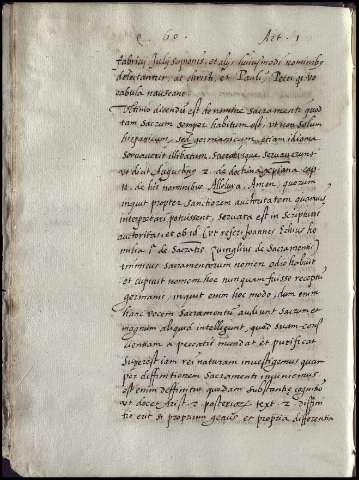 q. 60. Art. 1
fabricij Julij sempronij, et alijs huiusmodi nominibus
delectantur, ac christi, et Pauli, Petri qз vo
cabula nauseant.
dicendū est de nomine Sacramenti quod
tam sacrum semper habitum est, vt non solum
hispanicum, sed germanicum, etiam idioma
servaverit illibatum, Sacerdosque servaverunt
vt dicit Augustinus 2. de doctrina xpiana cap.
11. de his nominibus Alleluya, Amen, quorum
inquit propter sanctiorem auctoritatem quamvis
interpretari potuissent, servata est in scripturis
auctoritas, et ob id (vt refert Joannes Echius ho
milia 1ª de Sacratis) (vinglius de Sacramento)
inimicus sacramentorum nomen odio habuit
et cupivit nomen hoc nunquam fuisse receptū
germanis, inquit enim hoc modo, dum enim
hanc vocem Sacramentū audiunt sacrum et
magnum aliquid intellegunt, quod suam consci
entiam a peccatis mundat et purificat
Superest iam rei naturam investigemus quam
per diffinitionem Sacramenti inveniemus
est enim deffinitio quedam substantie cognitio
vt docet Arist. 2. posteriorū text. 2. diffini
tio erit si proprium genus, et propria differentia